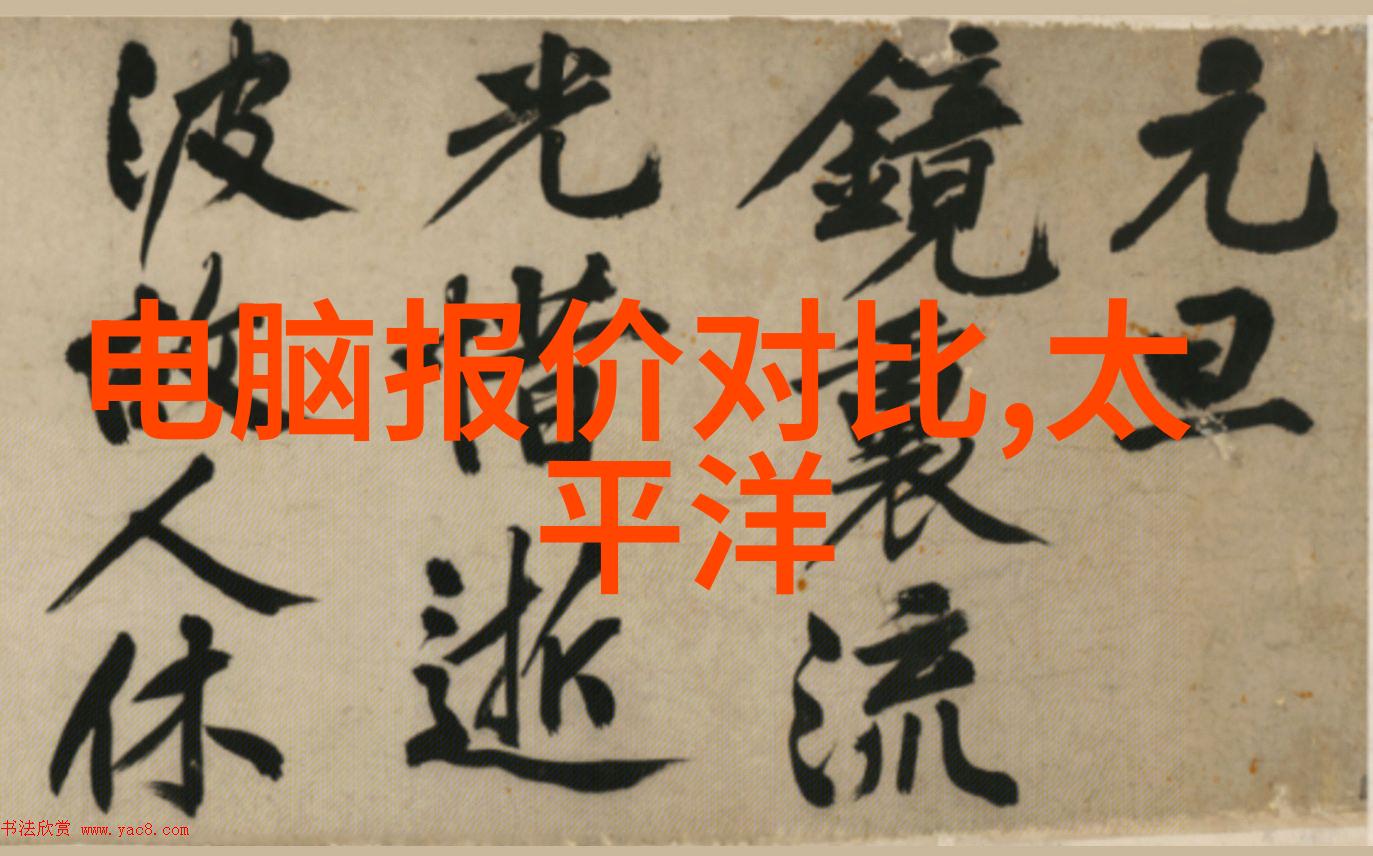 元旦
鏡裏流
光惜逝
波故人休
电脑报价对比,太
平洋
书法欣赏 www.yac8.com